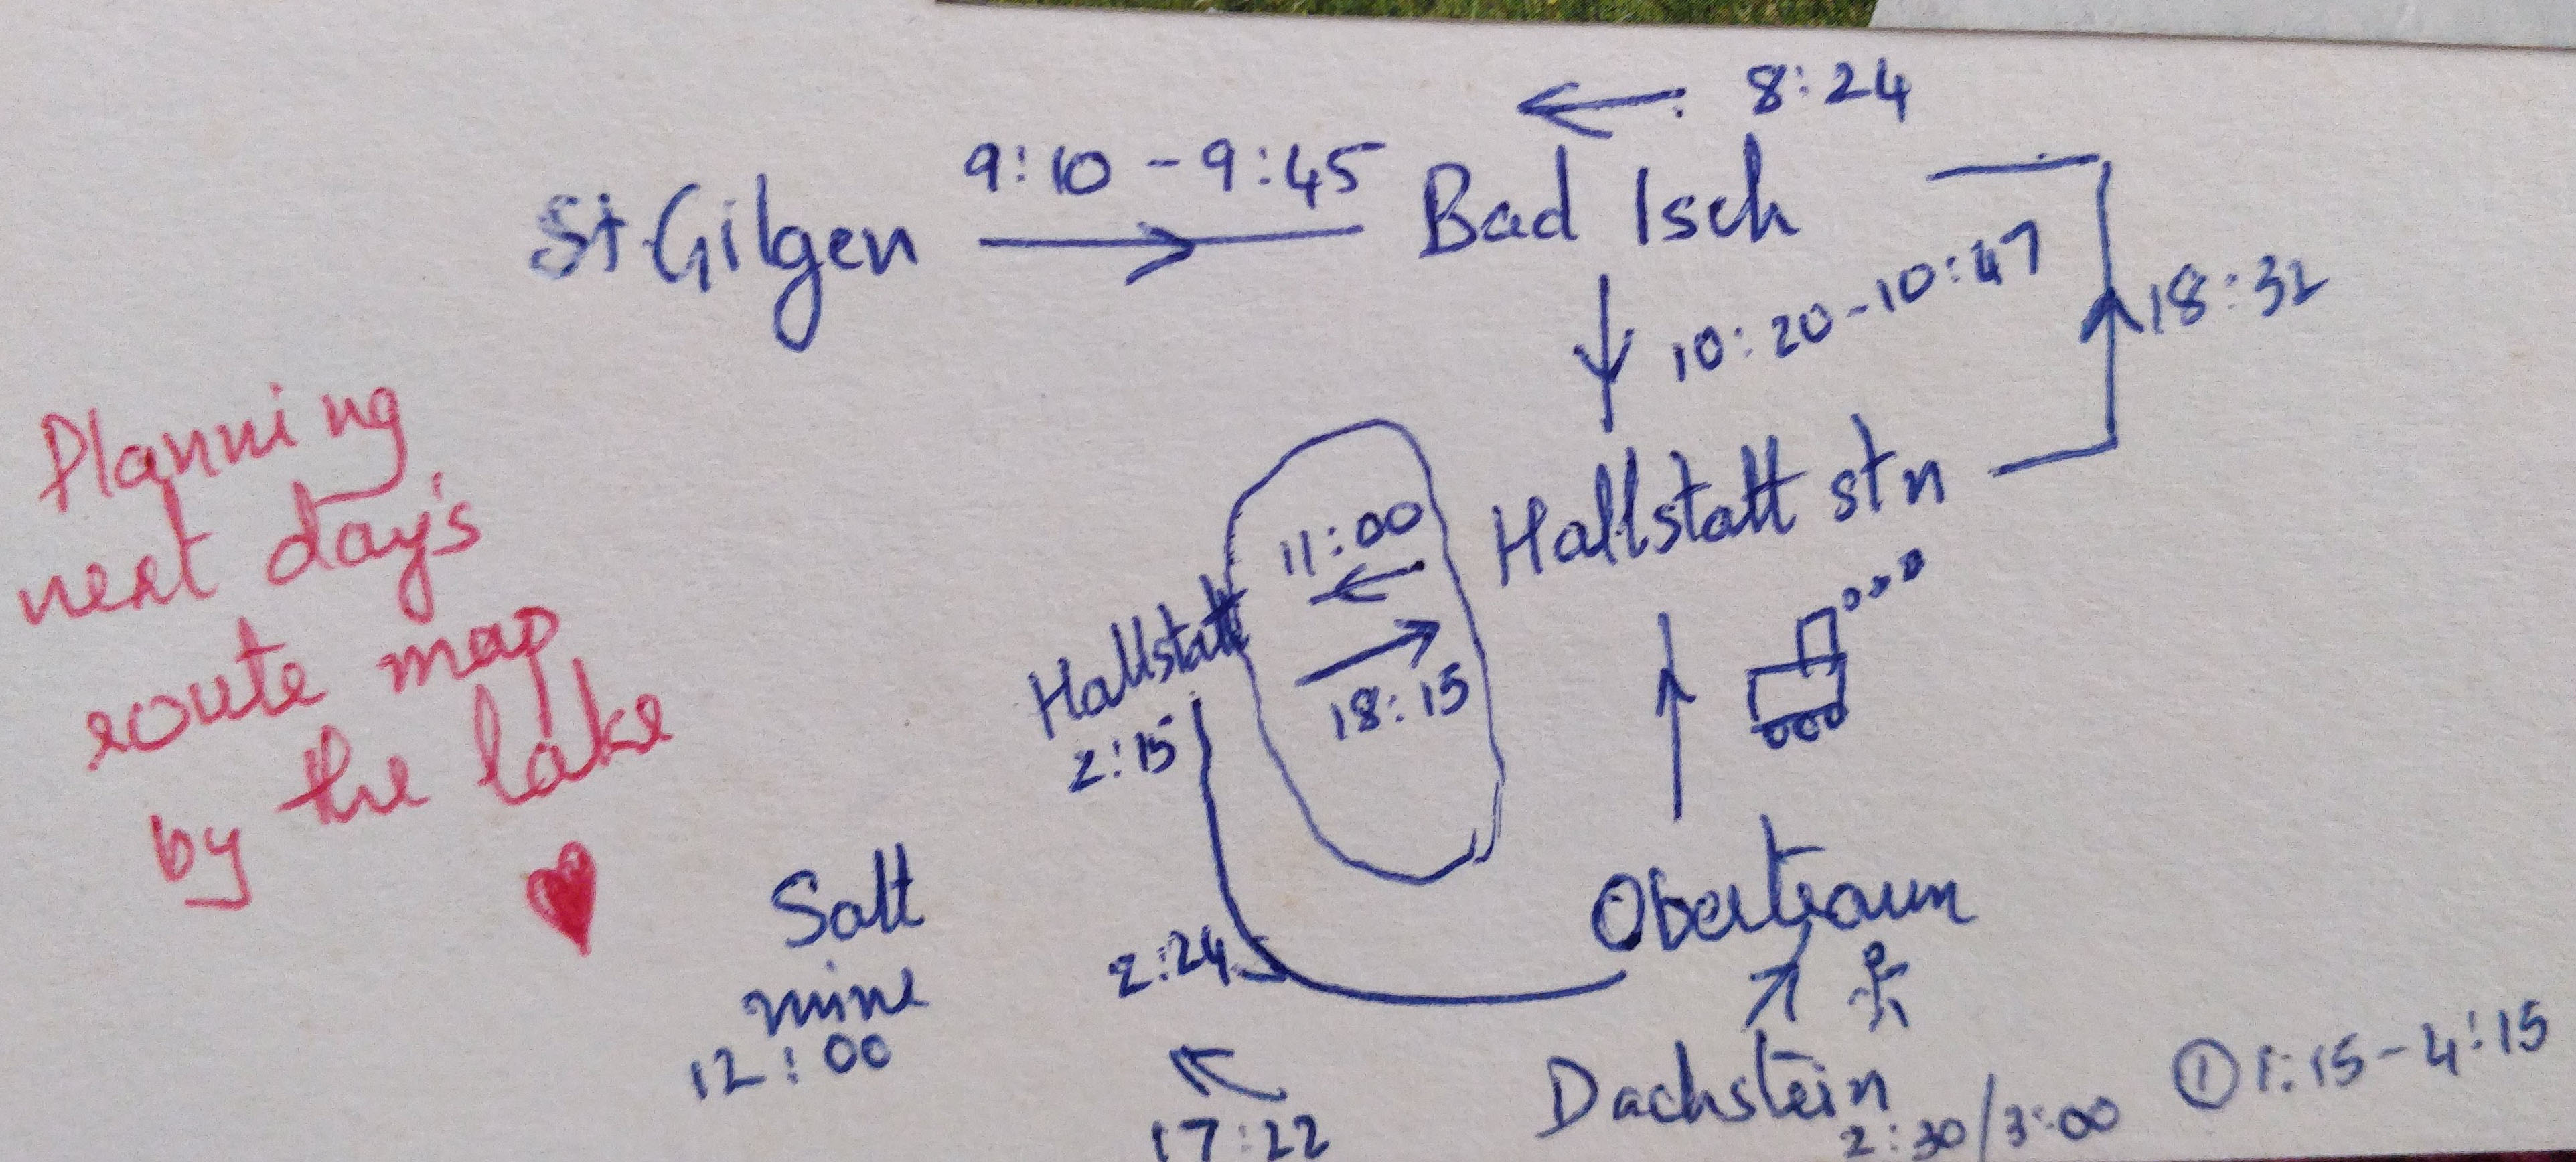 8:24
9:10 - 9:45
St Gilgen
Bad Isch
10:20-10:47
18:32
Planning
next day's
route map
by the lake
11:00
Hallstatt stn
Hallstatt
2:15
18:15
Salt
mine
12:00
2:24
Obertraun
17:22
Dachstein
2:30/3:00
① 1:15-4:15